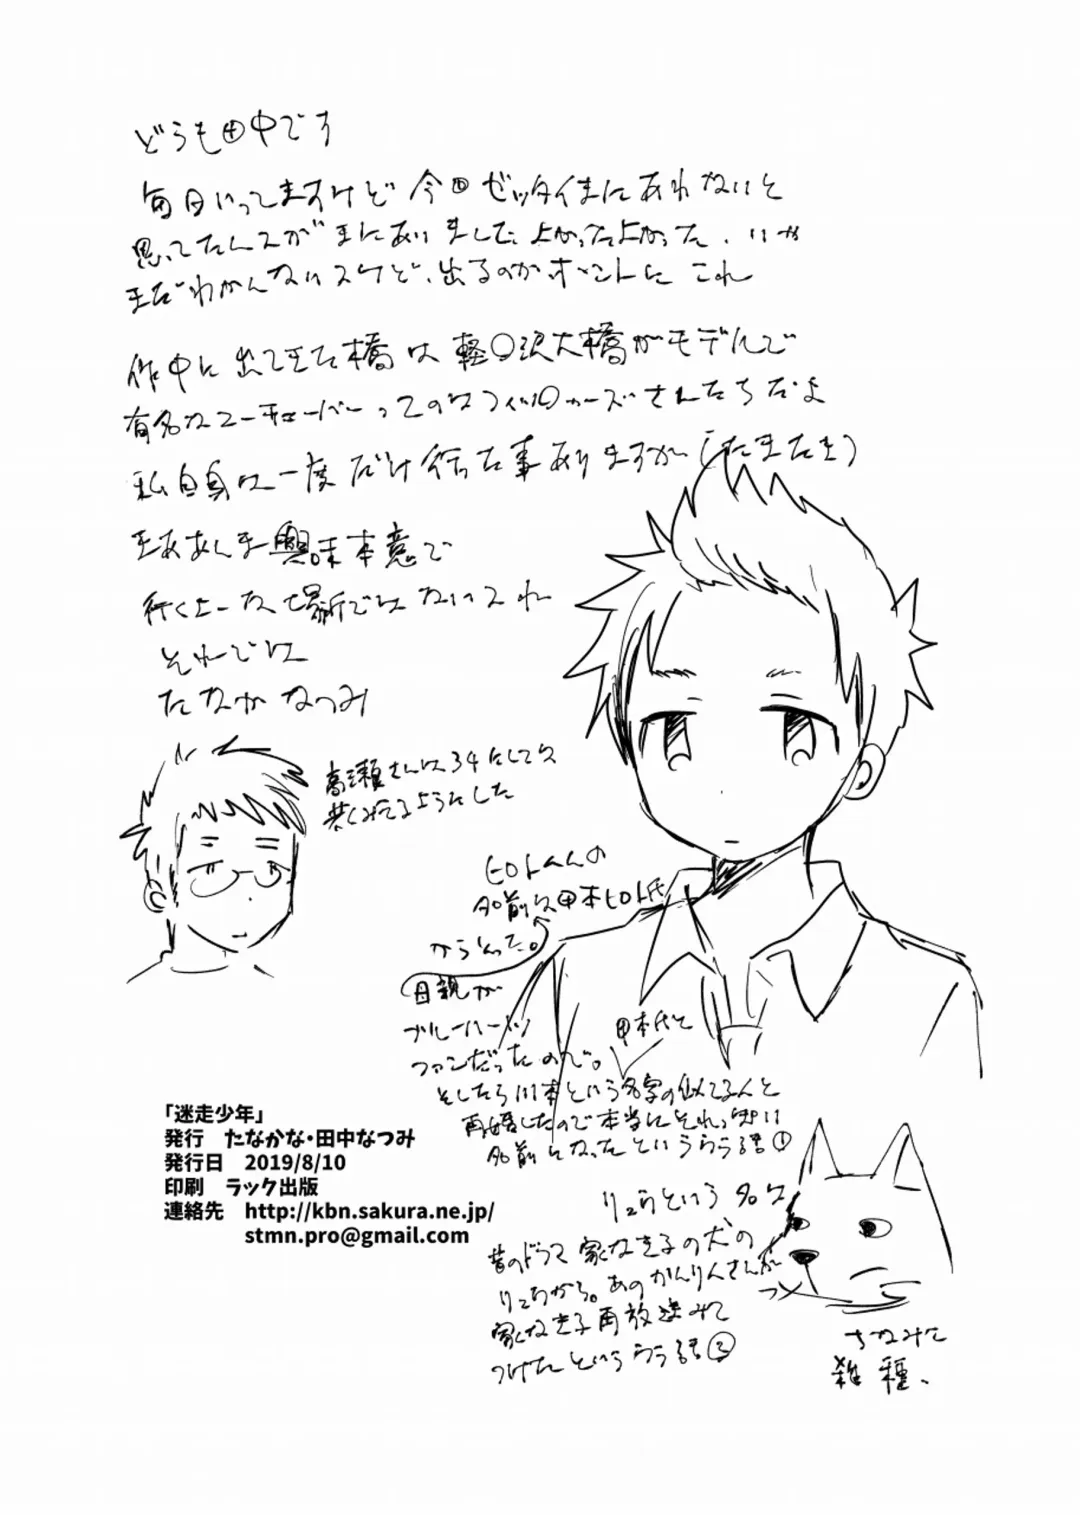 どうも田中です
毎日いってますけど今回ゼッタイまにあわないと
思ってたんスがまにあいました。よかったよかった、いや
まだわかんないスケど、出るのかホントに これ
作中に出てきた橋は軽〇沢大橋がモデルで
有名なユーチューバーってのはフィ〇ロカーズさんたちだよ
私自身は一度だけ行った事ありますが(たまたま)
まああんま興味本意で
行くよーな場所ではないスね
それでは
たなかなつみ
高瀬さんは34にしては
老くみてるようにした
ヒロトくんの
名前は甲本ヒロト氏
からとった。
母親が
ブルーハーツ
ファンだったので。
甲本氏と
そしたら川本という名字の似てる人と
再婚したので本当にそれっぽい
名前になったというウラ話①
リュウという名は
昔のドラマ家なき子の犬の
リュウから。あのかんりんさんが
家なき子再放送みて
つけたというウラ話②
ちなみに
雑種、
「迷走少年」
発行 たなかな・田中なつみ
発行日 2019/8/10
印刷 ラック出版
連絡先 http://kbn.sakura.ne.jp/
stmn.pro@gmail.com